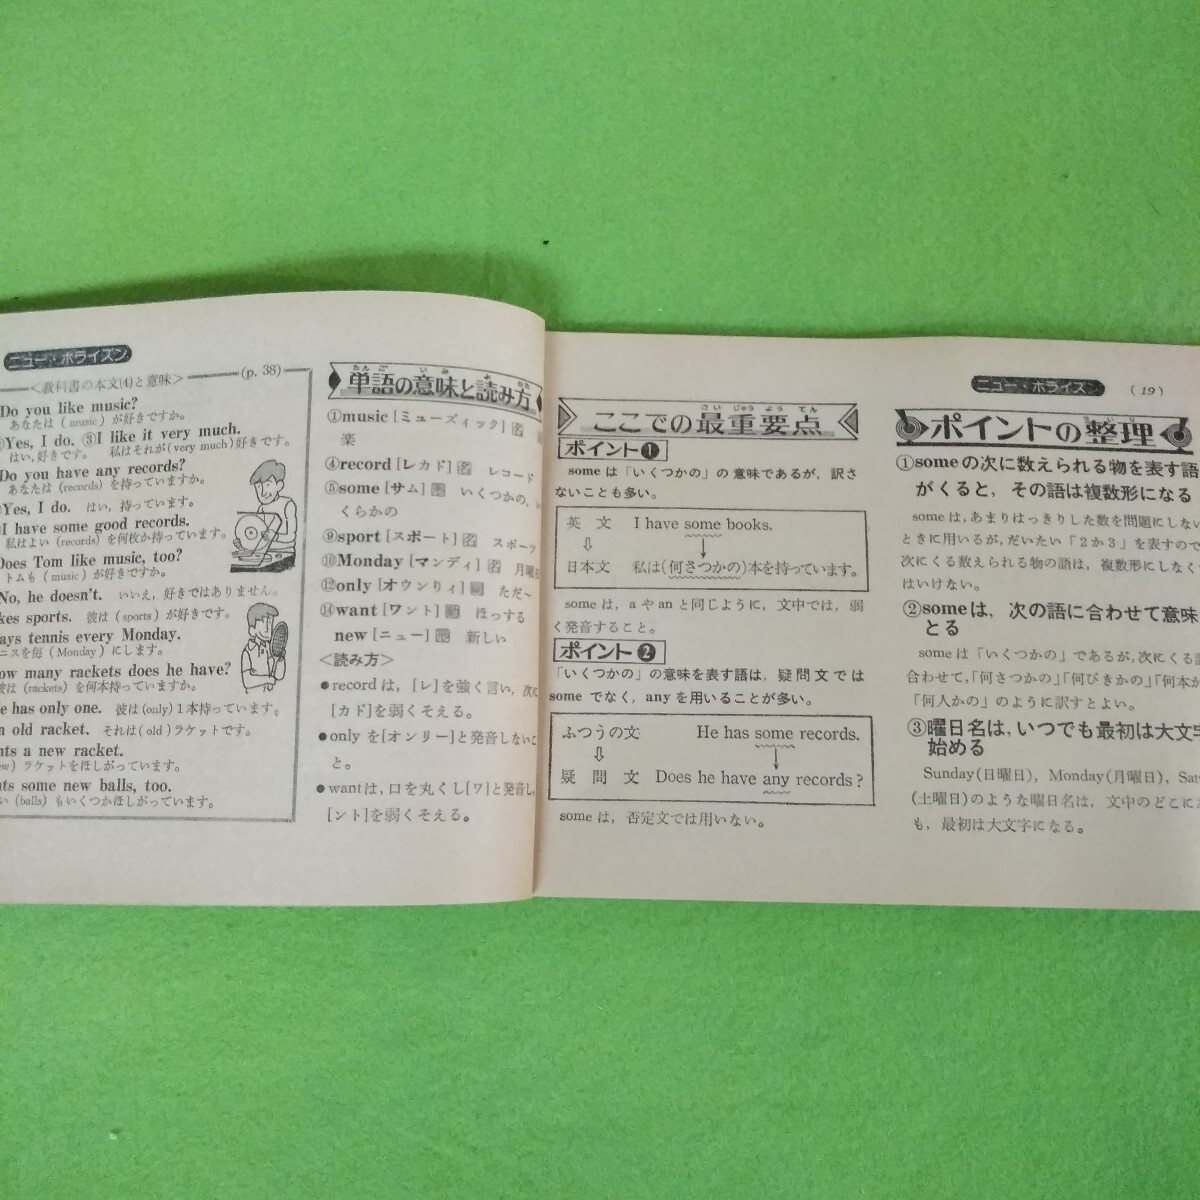 ニュー・ホライズン
<教科書の本文(4)と意味>
(p. 38)
Do you like music?
あなたは (music) が好きですか。
Yes, I do. ③I like it very much.
はい,好きです。 私はそれが(very much)好きです。
Do you have any records?
あなたは (records) を持っていますか。
Yes, I do. はい, 持っています。
I have some good records.
私はよい (records) を何枚か持っています。
Does Tom like music, too?
トムも (music) が好きですか。
No, he doesn't. いいえ, 好きではありません。
kes sports. 彼は (sports) が好きです。
ays tennis every Monday.
ニスを毎 (Monday) にします。
ow many rackets does he have?
彼は (rackets) を何本持っていますか。
e has only one. 彼は(only) 1本持っています。
n old racket. それは(old)ラケットです。
nts a new racket.
ew) ラケットをほしがっています。
nts some new balls, too.
い (balls) もいくつかほしがっています。
単語の意味と読み方
たんご いみ よ かた
①music [ミューズィック] 名
楽
④record [レカド] 名 レコード
⑤some [サム] 形 いくつかの,
くらかの
⑨sport [スポート] 名 スポーツ
⑩Monday [マンディ] 名 月曜日
⑫only [オウンりィ] 副 ただ~
⑭want [ワント] 動 ほっする
new [ニュー] 形 新しい
<読み方>
●recordは, [レ]を強く言い, 次に
[カド]を弱くそえる。
●only を[オンリー]と発音しないこ
と。
●wantは, 口を丸くし[ワ]と発音し,
[ント]を弱くそえる。
ここでの最重要点
さい じゅう よう てん
ポイント❶
someは「いくつかの」の意味であるが, 訳さ
ないことも多い。
英文 I have some books.
⇩
日本文 私は(何さつかの)本を持っています。
someは, aやanと同じように, 文中では, 弱
く発音すること。
ポイント❷
「いくつかの」の意味を表す語は, 疑問文では
someでなく, anyを用いることが多い。
ふつうの文 He has some records.
⇩
疑問文 Does he have any records?
someは, 否定文では用いない。
ニュー・ホライズン
(19)
ポイントの整理
せいり
①someの次に数えられる物を表す語
がくると, その語は複数形になる
someは, あまりはっきりした数を問題にしない
ときに用いるが, だいたい「2か3」を表すので
次にくる数えられる物の語は, 複数形にしなくて
はいけない。
②someは, 次の語に合わせて意味
とる
someは「いくつかの」であるが, 次にくる語
合わせて, 「何さつかの」「何びきかの」「何本か
「何人かの」のように訳すとよい。
③曜日名は, いつでも最初は大文字
始める
Sunday(日曜日), Monday(月曜日), Sat
(土曜日)のような曜日名は, 文中のどこにあ
も, 最初は大文字になる。